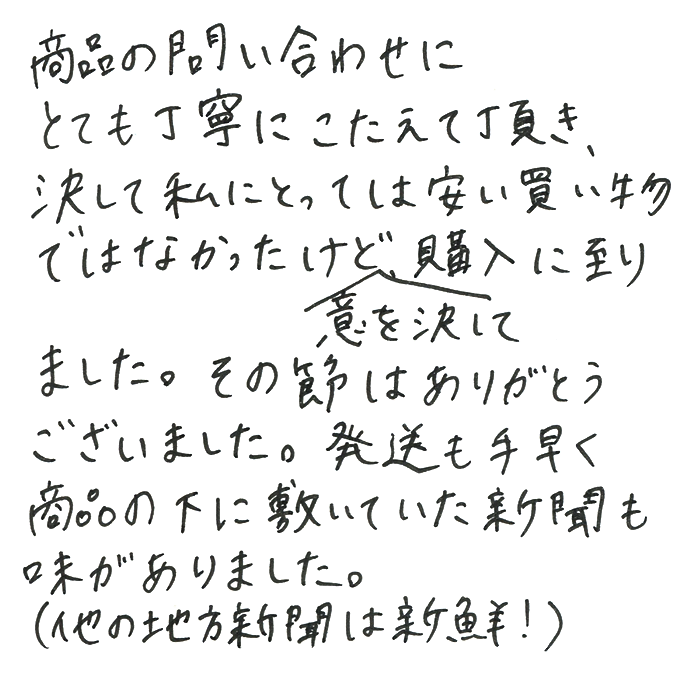 商品の問い合わせに
とても丁寧にこたえて頂き、
決して私にとっては安い買い物
ではなかったけど、購入に至り
意を決して
ました。その節はありがとう
ございました。発送も手早く
商品の下に敷いていた新聞も
味がありました。
(他の地方新聞は新鮮!)